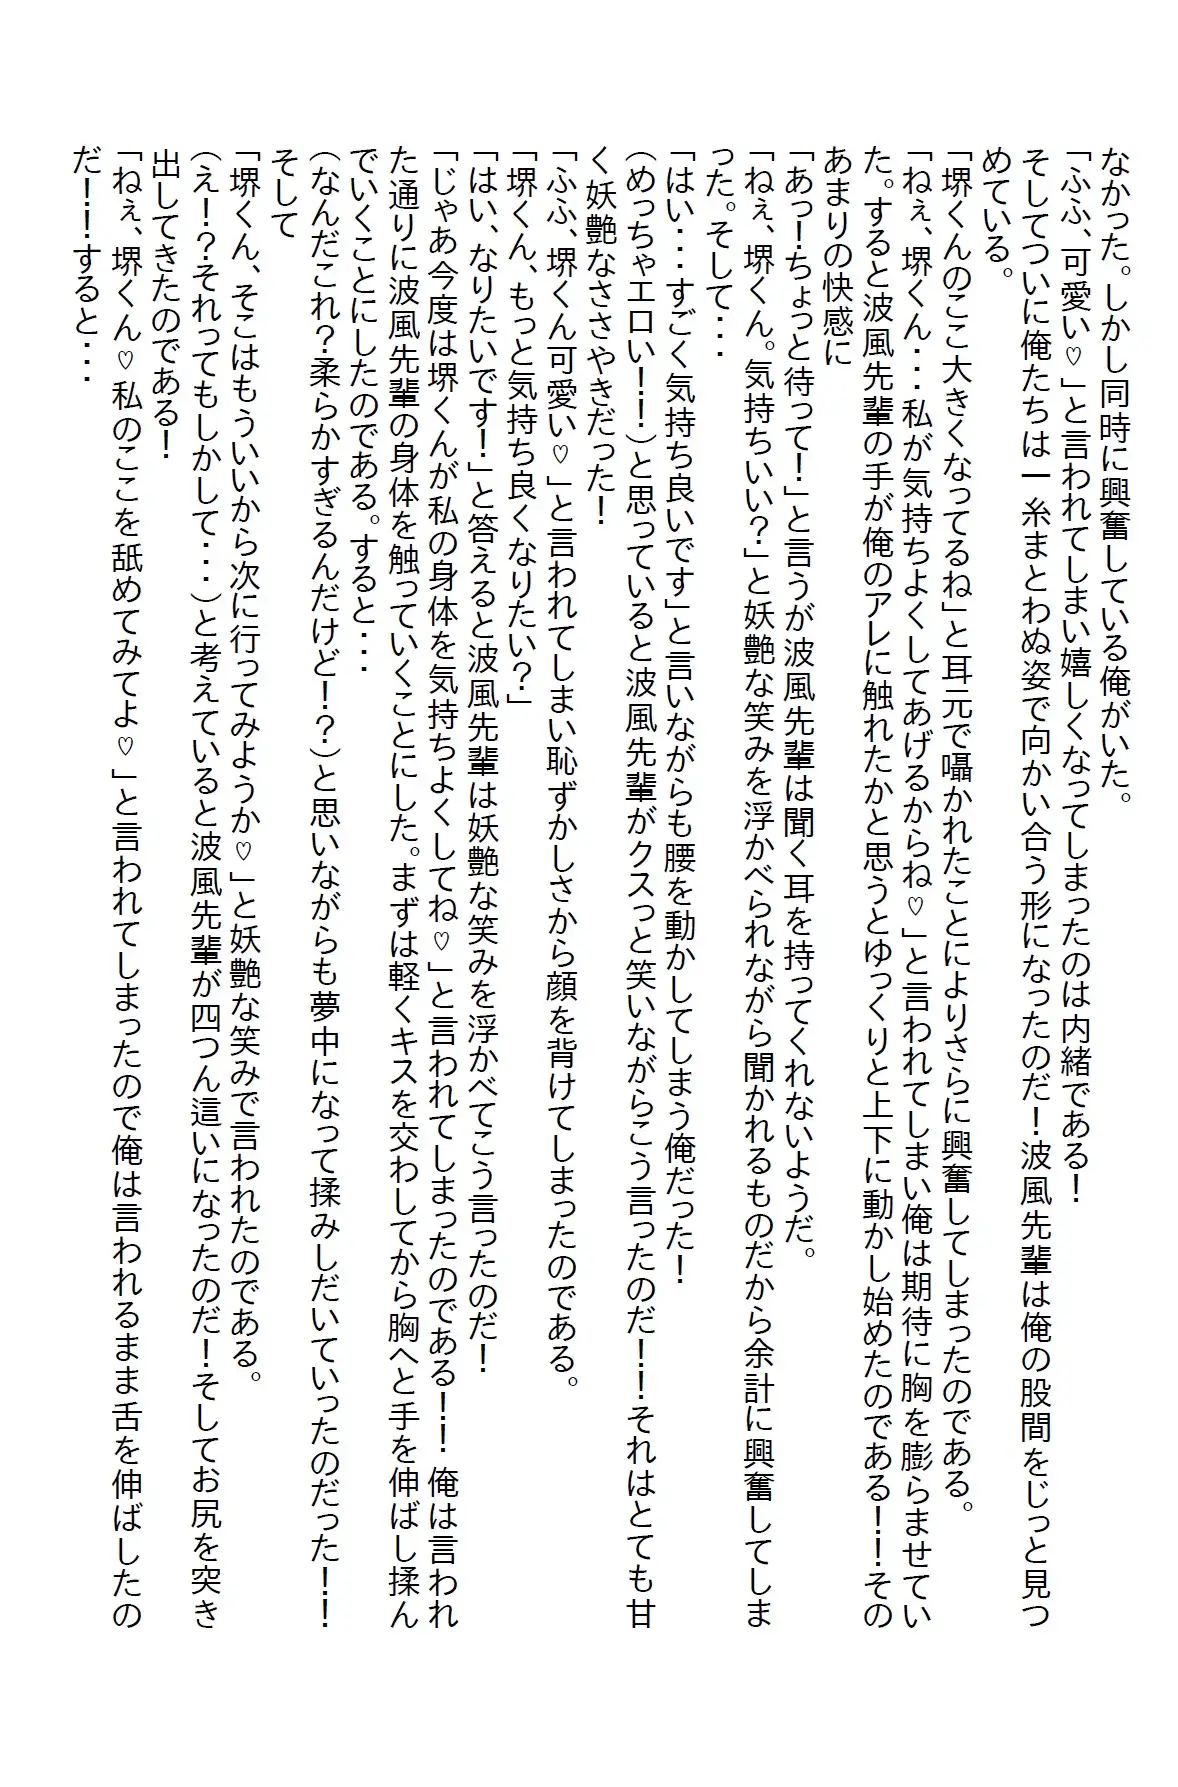 なかった。しかし同時に興奮している俺がいた。
「ふふ、可愛い♡」と言われてしまい嬉しくなってしまったのは内緒である！
そしてついに俺たちは一糸まとわぬ姿で向かい合う形になったのだ！波風先輩は俺の股間をじっと見つ
めている。
「堺くんのここ大きくなってるね」と耳元で囁かれたことによりさらに興奮してしまったのである。
「ねぇ、堺くん・・・私が気持ちよくしてあげるからね♡」と言われてしまい俺は期待に胸を膨らませてい
た。すると波風先輩の手が俺のアレに触れたかと思うとゆっくりと上下に動かし始めたのである！！その
あまりの快感に
「あっ！ちょっと待って！」と言うが波風先輩は聞く耳を持ってくれないようだ。
「ねぇ、堺くん。気持ちいい？」と妖艶な笑みを浮かべられながら聞かれるものだから余計に興奮してしま
った。そして・・・
「はい・・・すごく気持ち良いです」と言いながらも腰を動かしてしまう俺だった！
（めっちゃエロい！！）と思っていると波風先輩がクスっと笑いながらこう言ったのだ！！それはとても甘
く妖艶なささやきだった！
「ふふ、堺くん可愛い♡」と言われてしまい恥ずかしさから顔を背けてしまったのである。
「堺くん、もっと気持ち良くなりたい？」
「はい、なりたいです！」と答えると波風先輩は妖艶な笑みを浮かべてこう言ったのだ！
「じゃあ今度は堺くんが私の身体を気持ちよくしてね♡」と言われてしまったのである！！ 俺は言われ
た通りに波風先輩の身体を触っていくことにした。まずは軽くキスを交わしてから胸へと手を伸ばし揉ん
でいくことにしたのである。すると・・・
（なんだこれ？柔らかすぎるんだけど！？）と思いながらも夢中になって揉みしだいていったのだった！！
そして
「堺くん、そこはもういいから次に行ってみようか♡」と妖艶な笑みで言われたのである。
（え！？それってもしかして・・・）と考えていると波風先輩が四つん這いになったのだ！そしてお尻を突き
出してきたのである！
「ねぇ、堺くん♡私のここを舐めてみてよ♡」と言われてしまったので俺は言われるまま舌を伸ばしたの
だ！！すると・・・